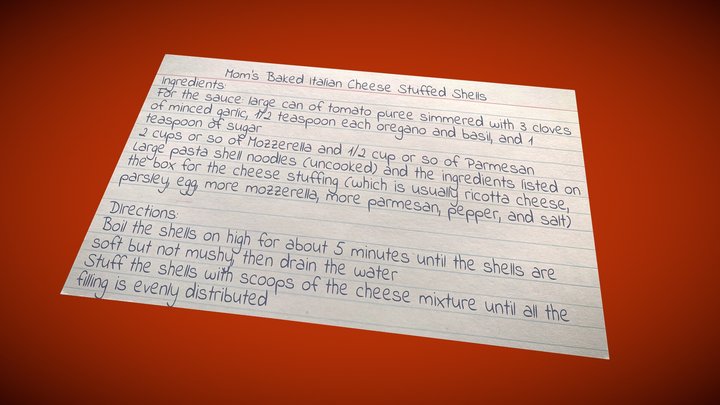 Mom's Baked Italian Cheese Stuffed Shells
Ingredients:
For the sauce: large can of tomato puree simmered with 3 cloves
of minced garlic, 1/2 teaspoon each oregano and basil, and 1
teaspoon of sugar
2 cups or so of Mozzerella and 1/2 cup or so of Parmesan
Large pasta shell noodles (uncooked) and the ingredients listed on
the box for the cheese stuffing (which is usually ricotta cheese,
parsley, egg, more mozzerella, more parmesan, pepper, and salt)
Directions:
Boil the shells on high for about 5 minutes until the shells are
soft but not mushy, then drain the water
Stuff the shells with scoops of the cheese mixture until all the
filling is evenly distributed